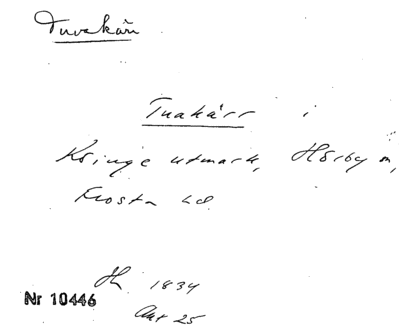 Tuvakärr
Tuakärr i
Kringe utmark, Hörby sn,
Frosta hd
Lh 1834
Nr 10446
Akt 25